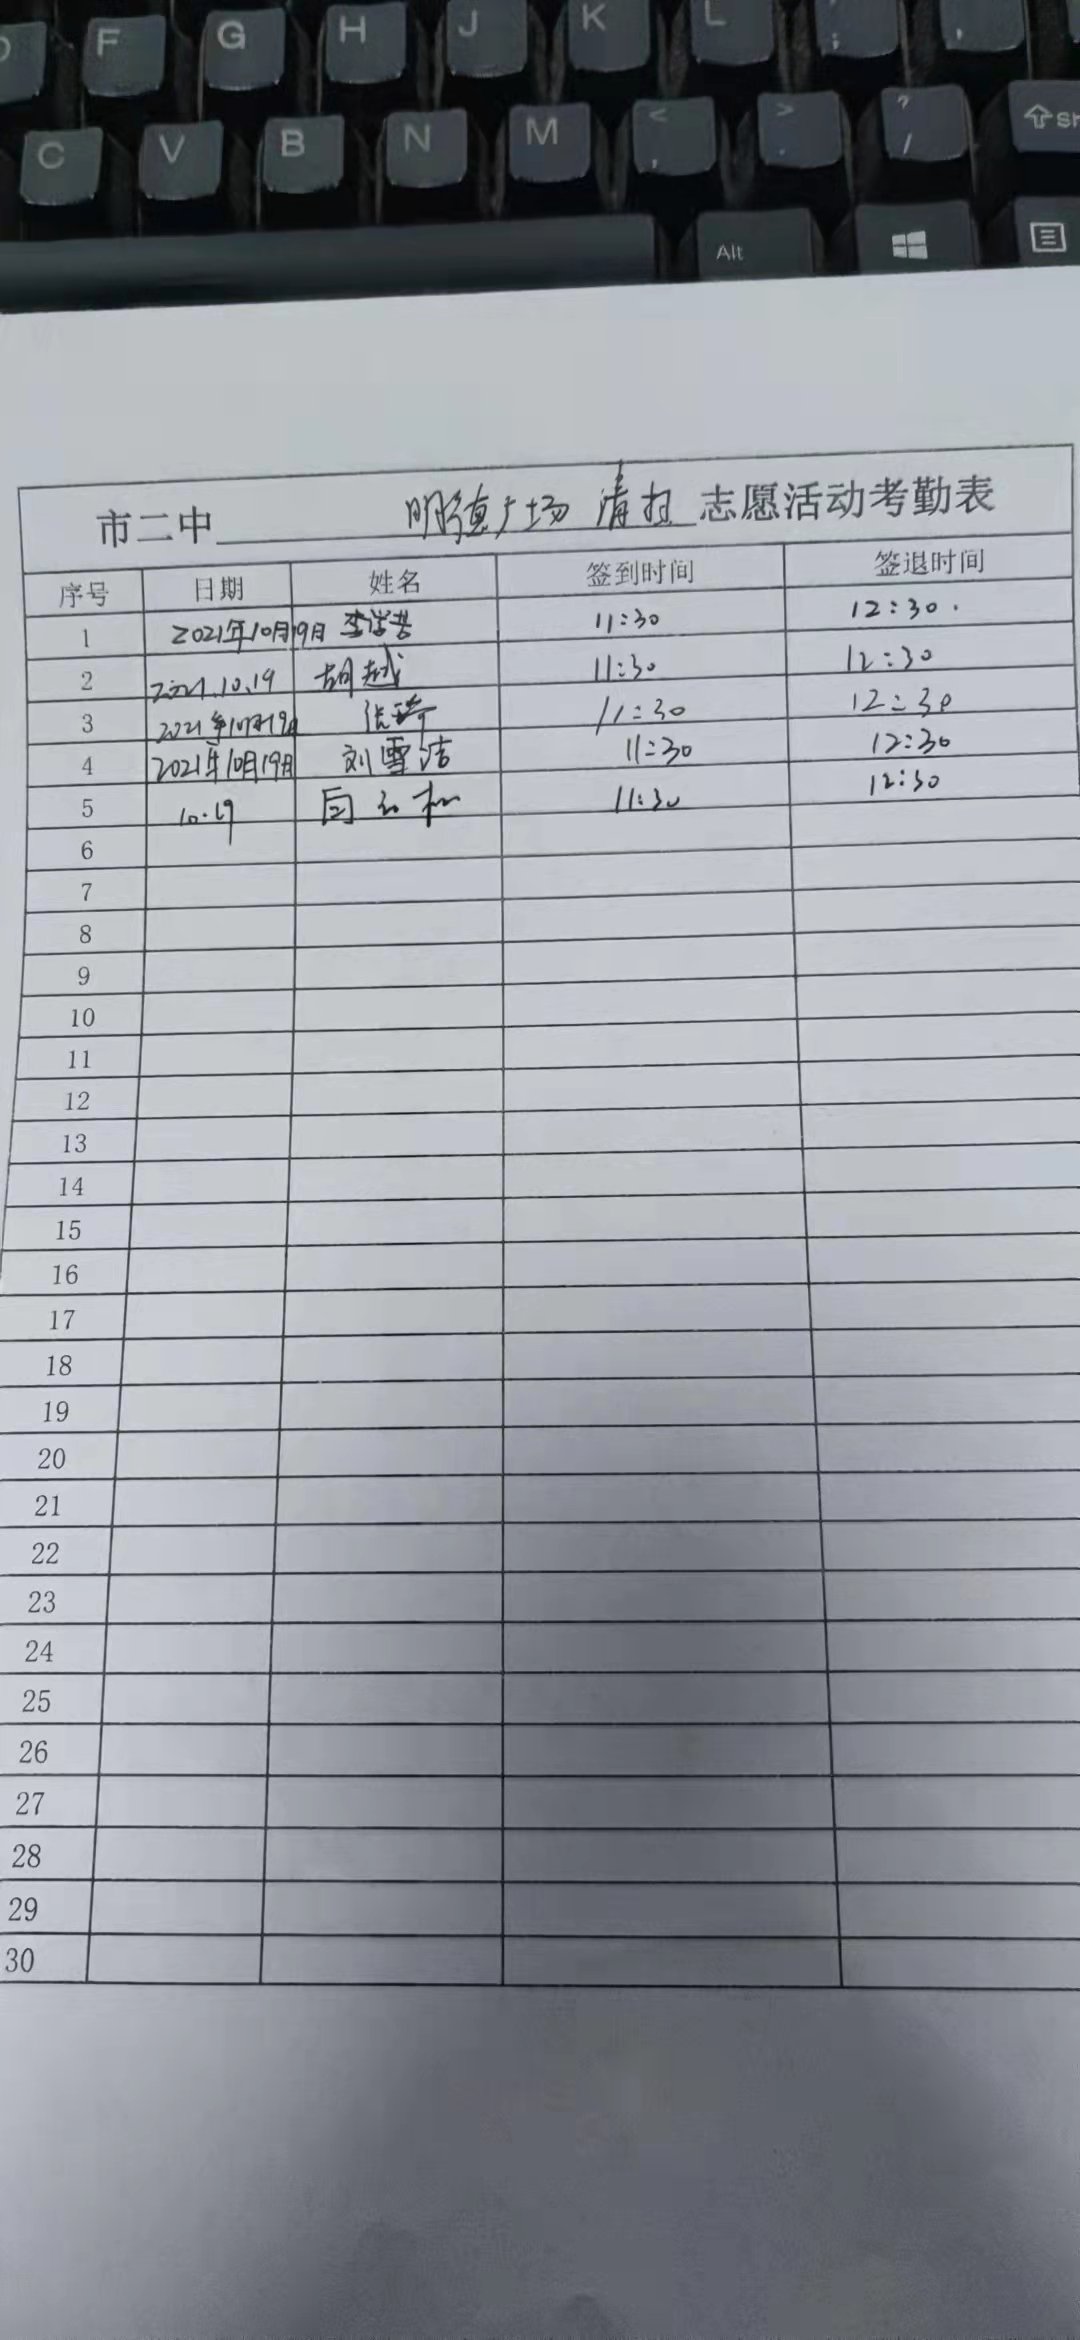 D F G H J K L ; '
C V B N M < , > . ? / ⇧ Sh
Alt
市二中 明德广场 清扫 志愿活动考勤表
序号 日期 姓名 签到时间 签退时间
1 2021年10月19日 11:30 12:30.
2 2021.10.19 胡越 11:30 12:30
3 2021年10月19日 张琦 11:30 12:30
4 2021年10月19日 刘雪洁 11:30 12:30
5 10.19 11:30 12:30
6
7
8
9
10
11
12
13
14
15
16
17
18
19
20
21
22
23
24
25
26
27
28
29
30